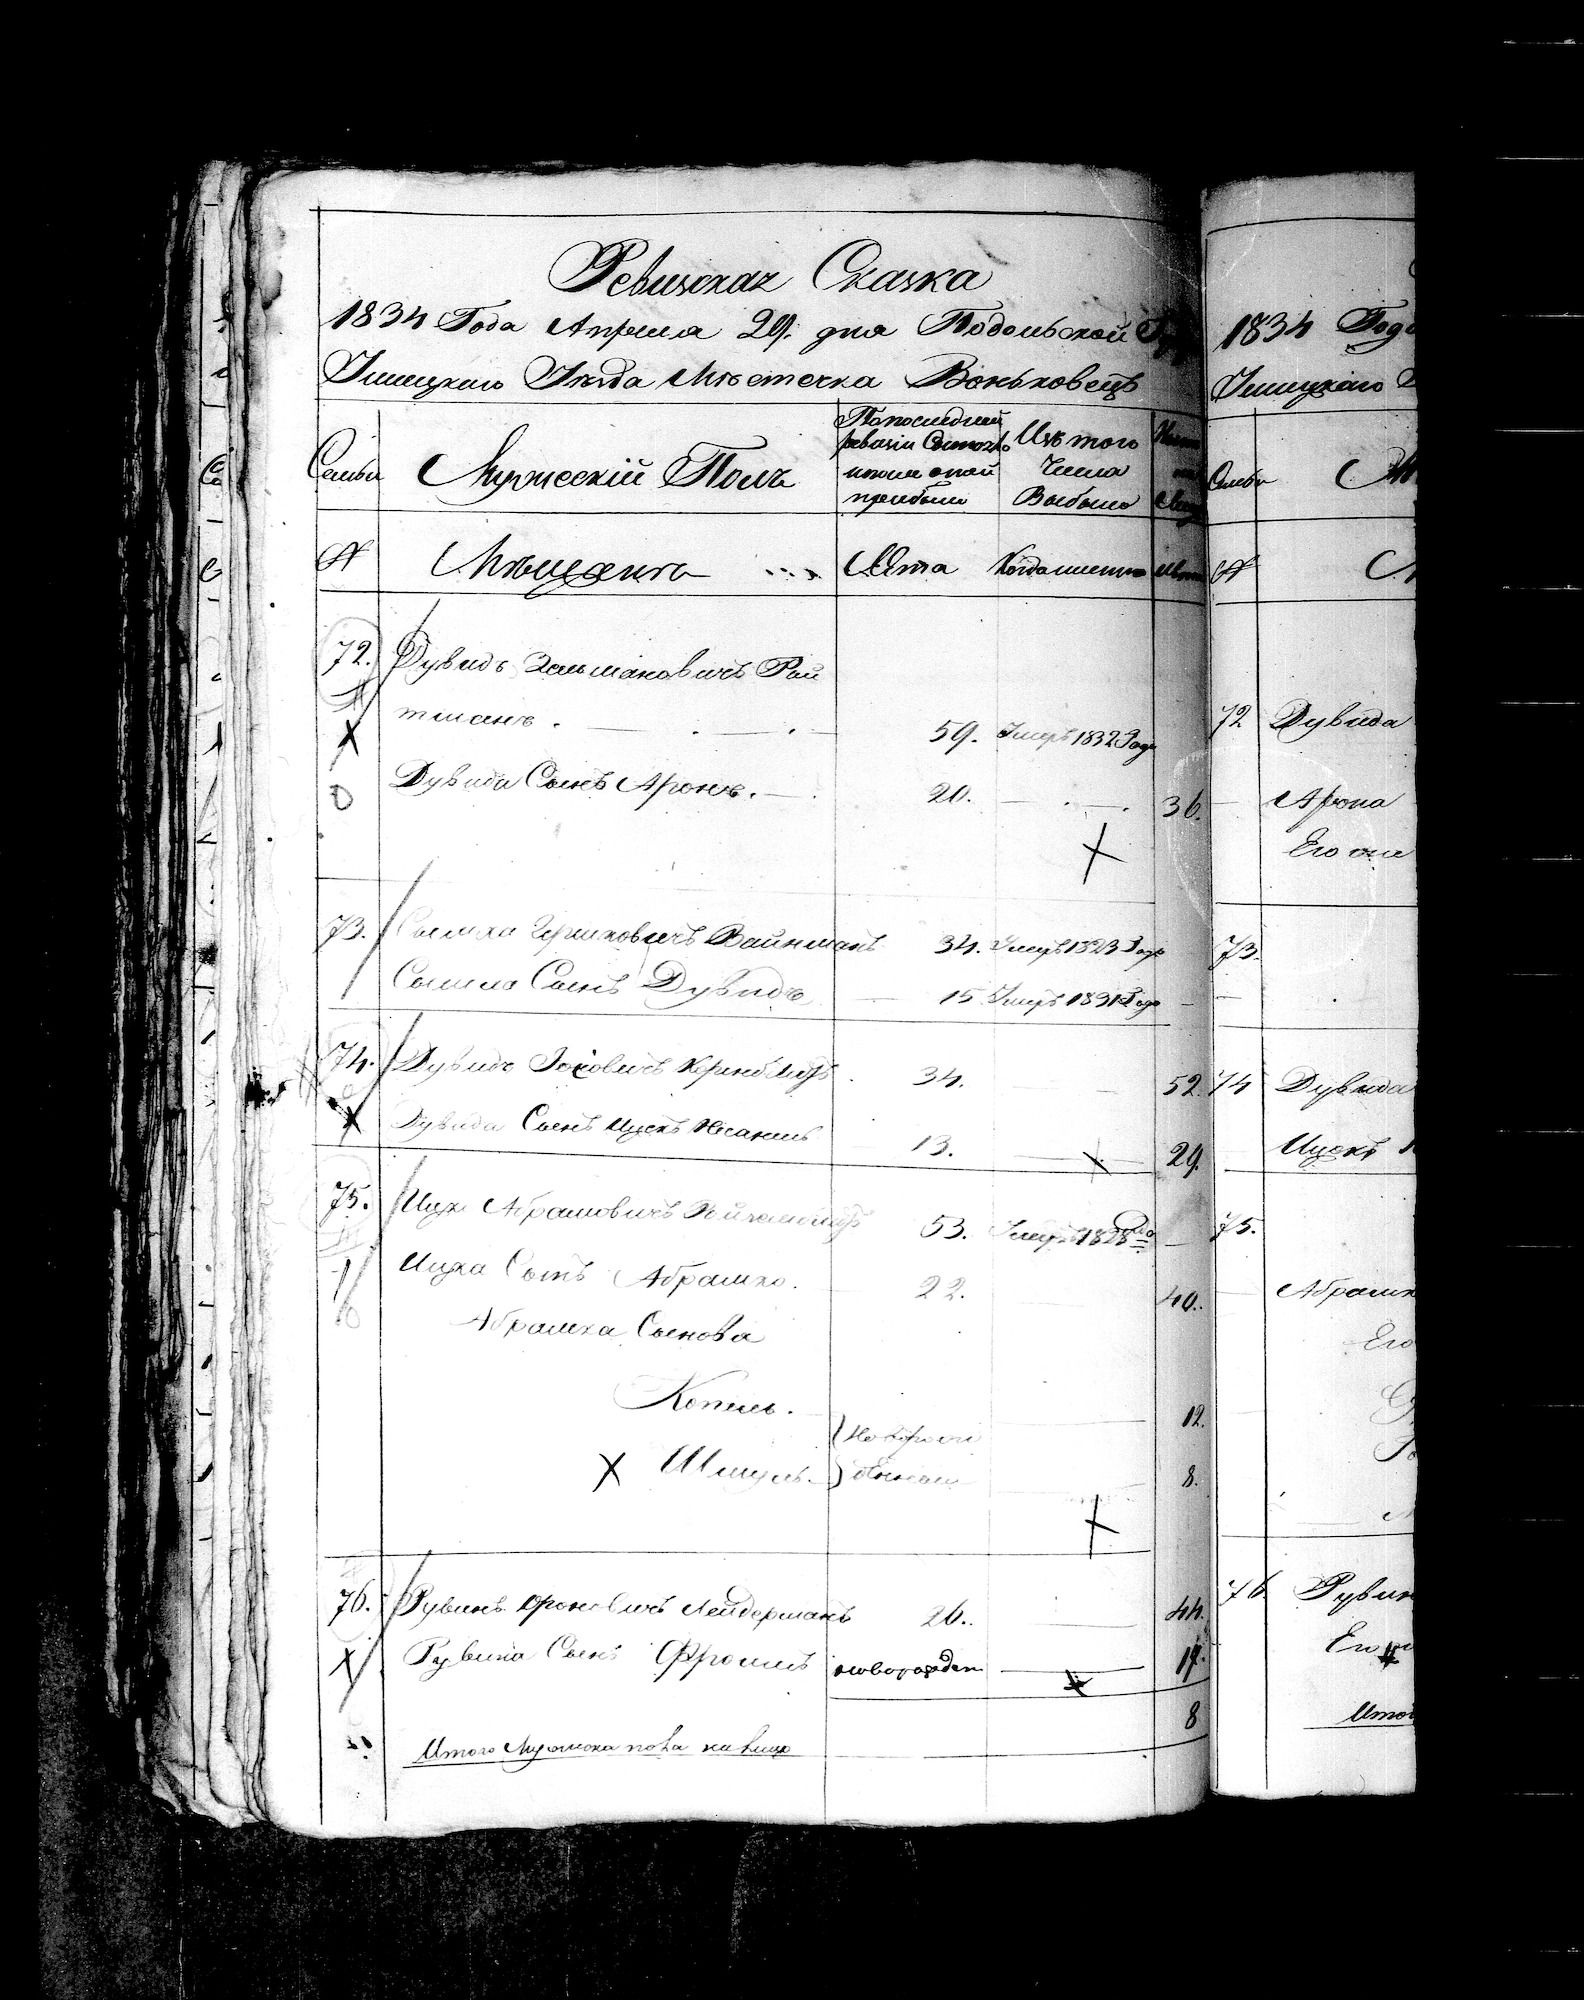 Ревизская Сказка
1834 Года Апреля 29. дня Подольской
Ушицкаго Уезда Местечка Воньковецъ
Семьи
Мужеский Полъ
По последней
ревизии Состояло
и после оной
прибыло
Изъ того
Числа
Выбыло
№
Мещане
Лета
Когда именно
72. Дувидъ Зельмановичъ Рой
тманъ. 59. Умеръ 1832 Года
Дувида Сынъ Аронъ. 20. 36.
73. Гершковичъ Вайнманъ 34. Умеръ 1823 Года
Сынъ Дувидъ 15 Умеръ 1831 Года
74. Дувидъ 34. 52.
Дувида Сынъ Ицекъ 13. 29.
75. Ицко Абрамовичъ 53. Умеръ 1828
Ицка Сынъ Абрамко. 22. 40.
Абрамка Сынова
Копель. 12.
Шмуль. 8.
76. Рувинъ Ароновичъ Лейдерманъ 26. 44.
Рувина Сынъ Фроимъ новорожден 17.
Итого Мужеска пола на лицо 8
1834 Года
Ушицкаго
Семьи
№
72 Дувида
Арона
Его
73.
74 Дувида
Ицекъ
75.
Абрамк
Его
76 Рувин
Его
Итого